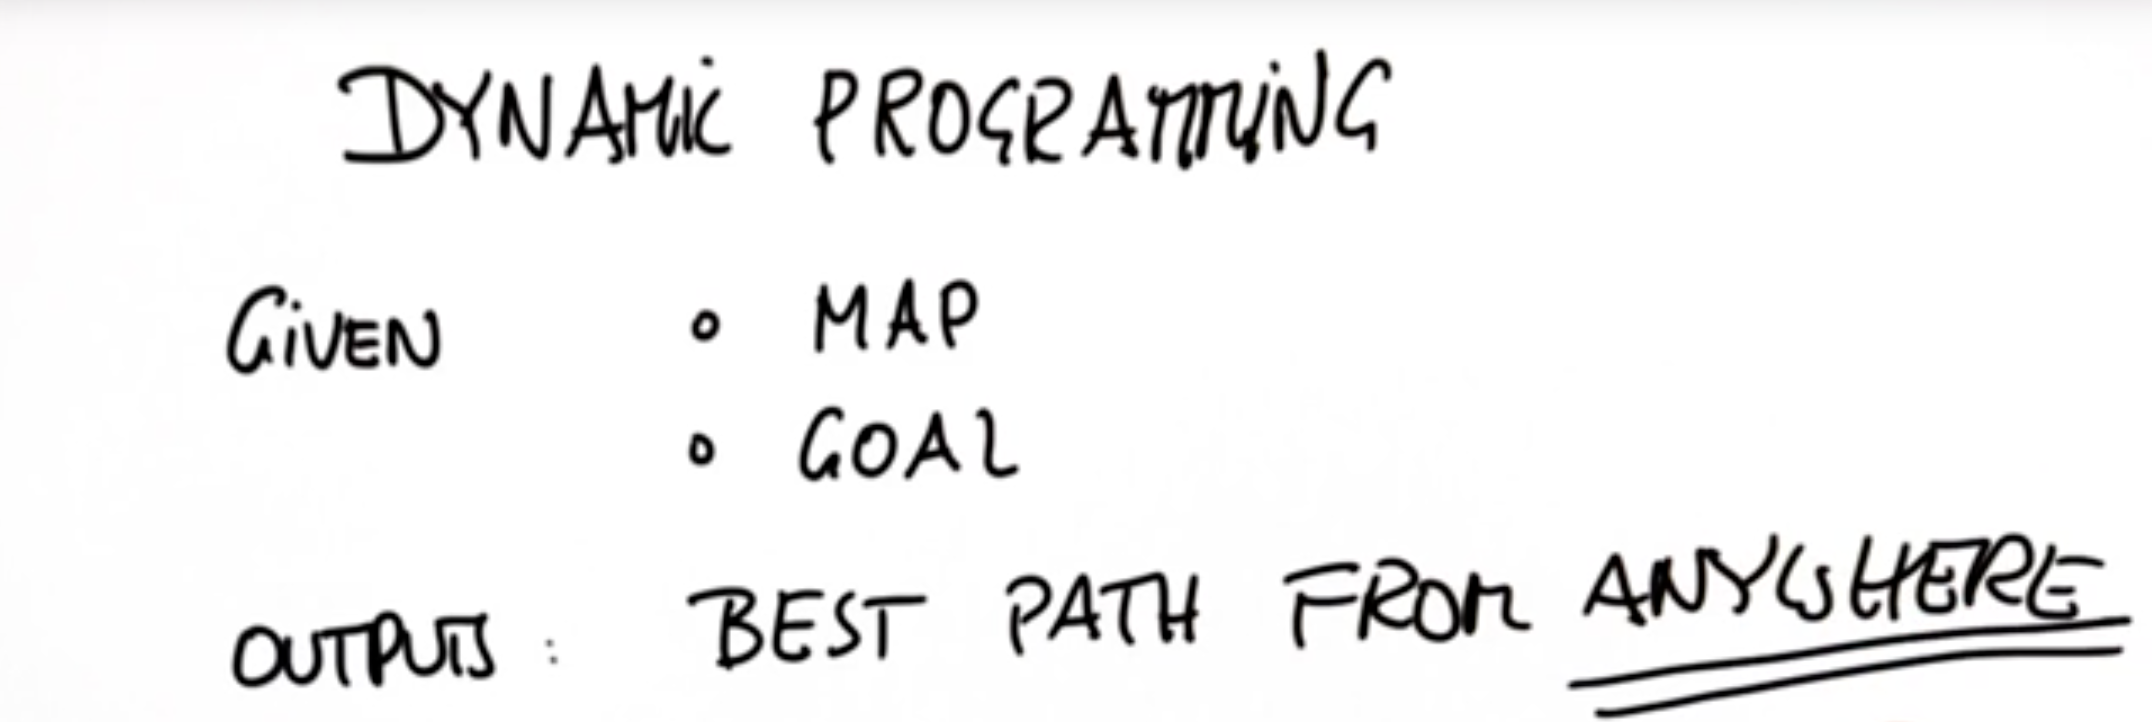 DYNAMIC PROGRAMMING
GIVEN ∘ MAP
∘ GOAL
OUTPUTS : BEST PATH FROM ANYWHERE